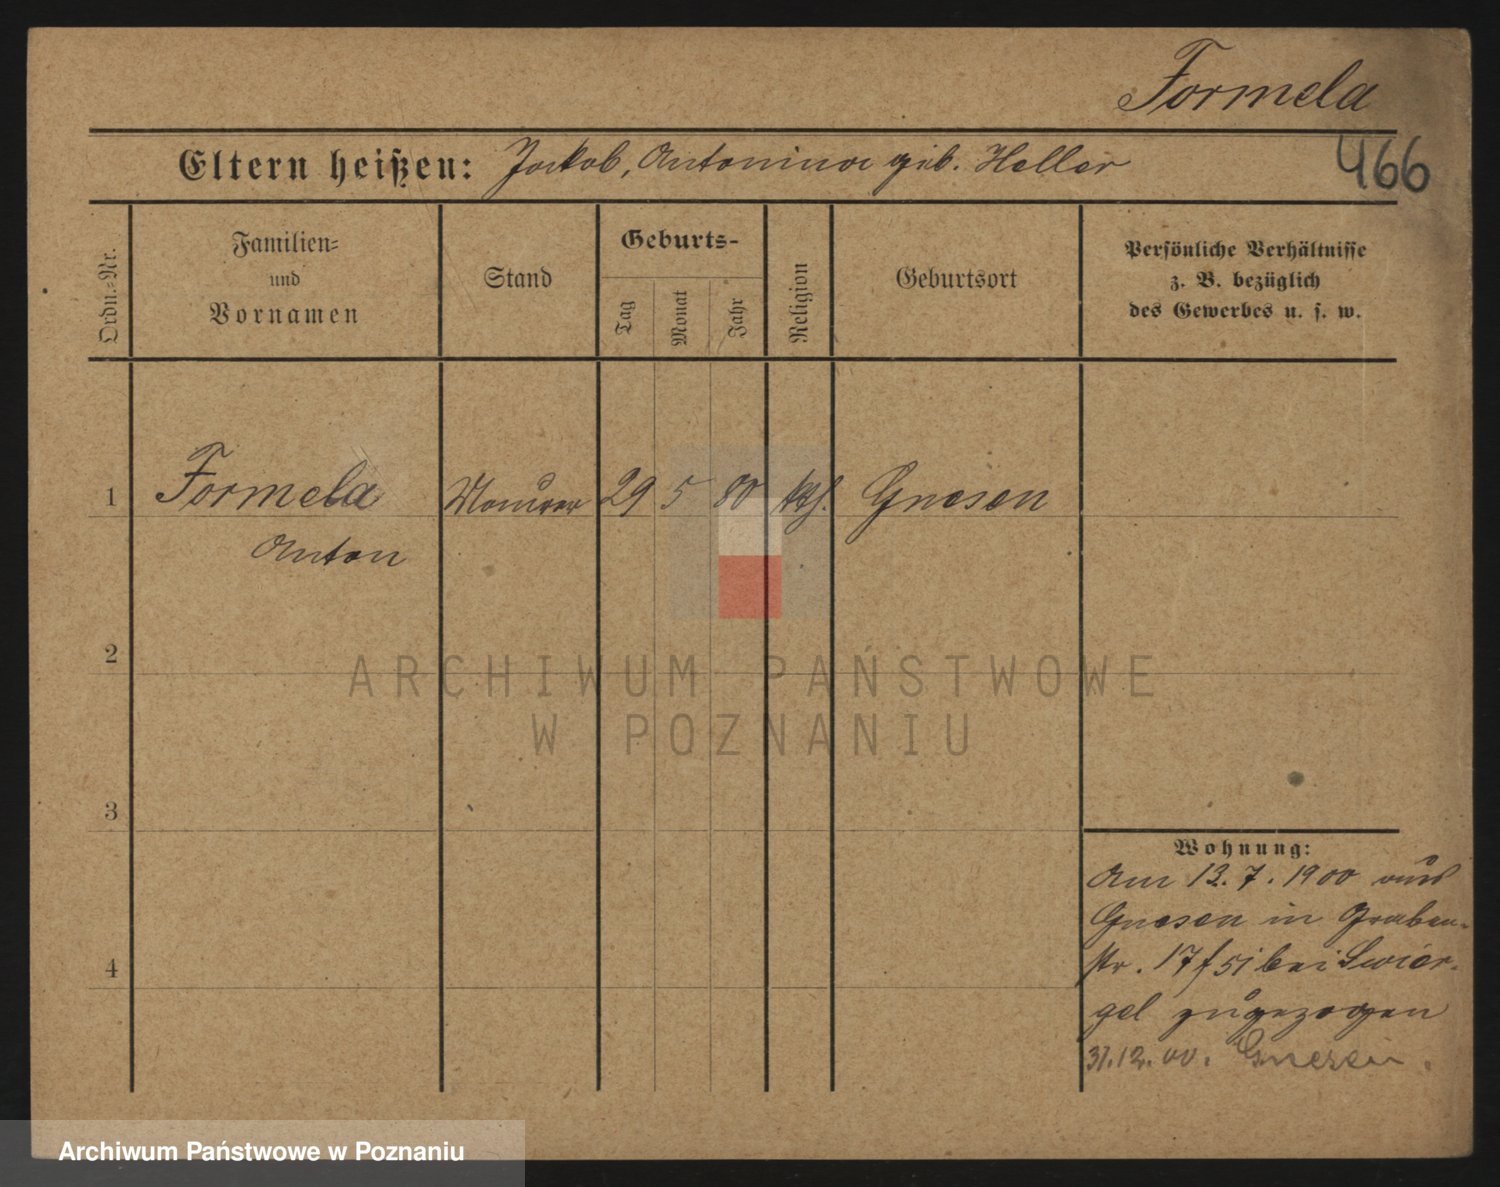 Formela
466
Eltern heißen: Jakob, Antonina geb. Heller
Ordn.=Nr.
Familien=
und
Vornamen
Stand
Geburts-
Tag
Monat
Jahr
Religion
Geburtsort
Persönliche Verhältnisse
z. B. bezüglich
des Gewerbes u. s. w.
1 Formela Maurer 29 5 80 kth. Gnesen
Anton
2
3
4
Wohnung:
Am 13.7.1900 aus
Gnesen in Graben-
str. 17 bei Swier-
gel zugezogen
31.12.00. Gnesen.
ARCHIWUM PAŃSTWOWE
W POZNANIU
Archiwum Państwowe w Poznaniu